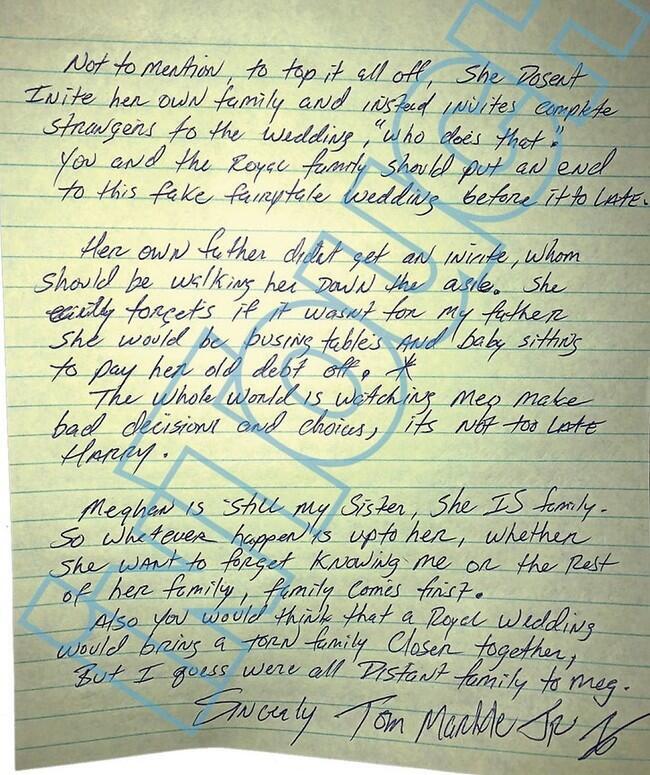 Not to mention, to top it all off, She Dosent
Inite her own family and instead invites complete
strangers to the wedding, "who does that."
You and the Royal family should put an end
to this fake fairytale wedding before it to LATE.
Her own father didnt get an inivite, whom
should be walking her DOWN the asle. She
forgets if it wasnt for my father
She would be busing tables AND baby sitting
to pay her old debt off. *
The whole world is watching Meg make
bad decisions and choices, its NOT too LATE
HARRY.
Meghan is still my Sister, She IS family.
So whatever happen is upto her, whether
She WANT to forget Knowing me or the Rest
of her family, family comes first.
Also you would think that a Royal wedding
would bring a TORN family Closer together,
But I guess were all Distant family to Meg.
Sincerly Tom Markle Jr